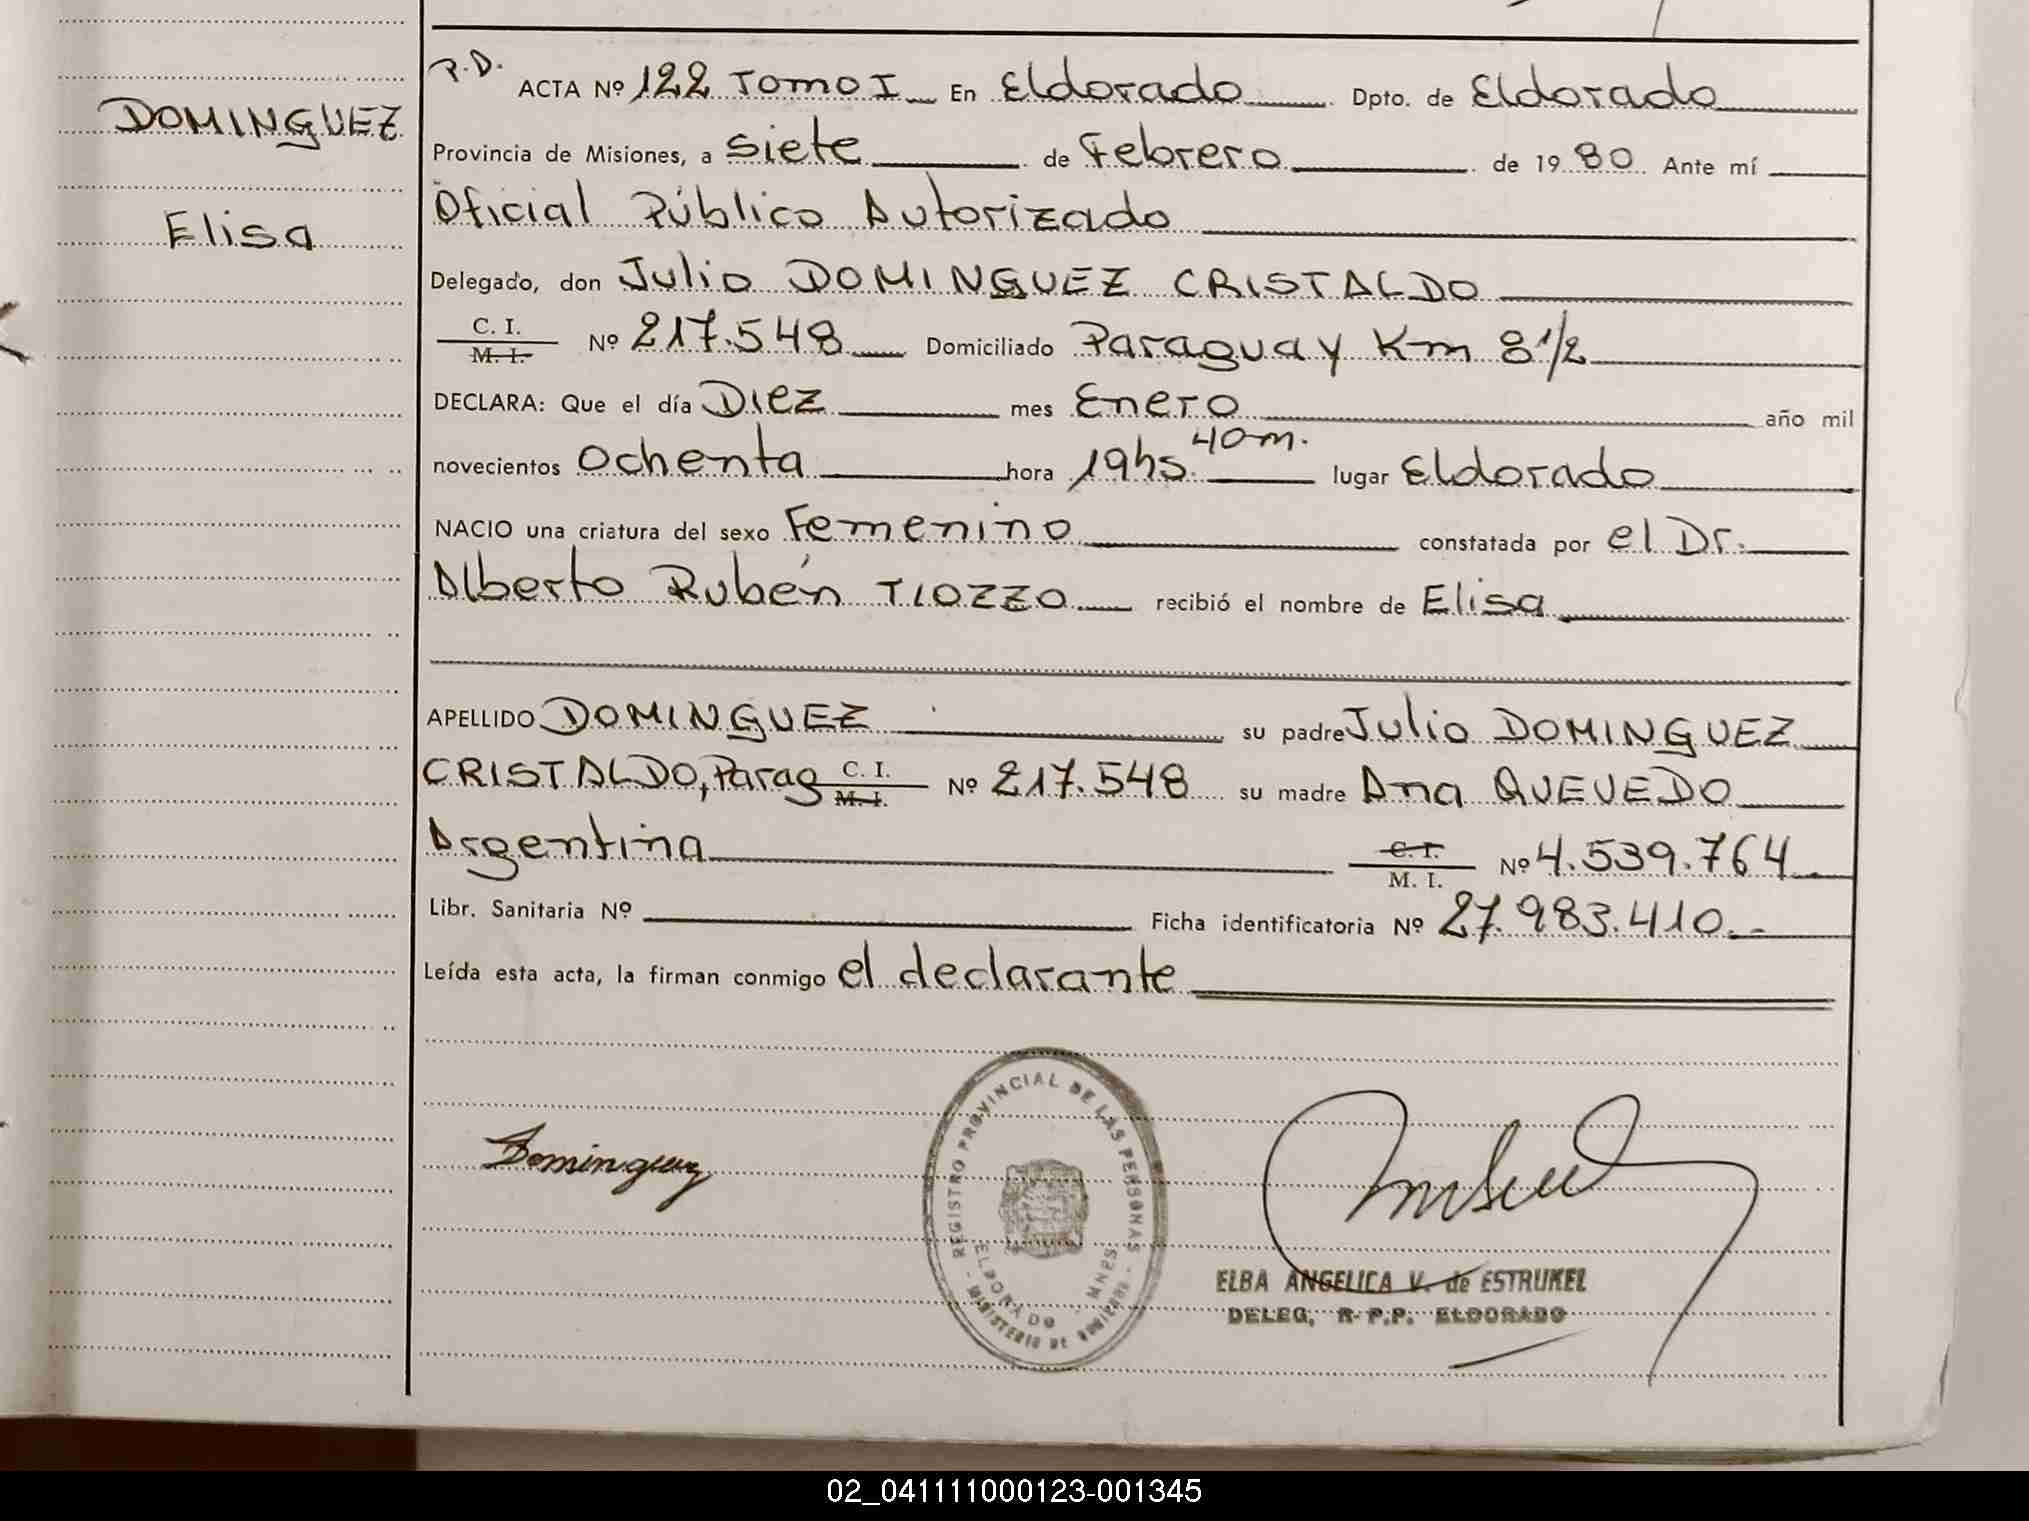 DOMINGUEZ
Elisa
P.D. ACTA Nº 122 Tomo I En Eldorado Dpto. de Eldorado
Provincia de Misiones, a siete de Febrero de 1980 Ante mí
Oficial Público Autorizado
Delegado, don Julio DOMINGUEZ CRISTALDO
C. I. M. I. Nº 217.548 Domiciliado Paraguay Km 8 1/2
DECLARA: Que el día Diez mes Enero año mil
novecientos ochenta hora 19hs. 40m. lugar Eldorado
NACIO una criatura del sexo Femenino constatada por el Dr.
Alberto Rubén TIOZZO recibió el nombre de Elisa
APELLIDO DOMINGUEZ su padre Julio DOMINGUEZ
CRISTALDO, Parag C. I. M. I. Nº 217.548 su madre Ana QUEVEDO
Argentina C. I. M. I. Nº 4.539.764
Libr. Sanitaria Nº Ficha identificatoria Nº 27.983.410.-
Leída esta acta, la firman conmigo el declarante
Dominguez
REGISTRO PROVINCIAL DE LAS PERSONAS
ELDORADO - MNES
MINISTERIO DE GOBIERNO
ELBA ANGELICA V. de ESTRUKEL
DELEG. R.P.P. ELDORADO
02_041111000123-001345